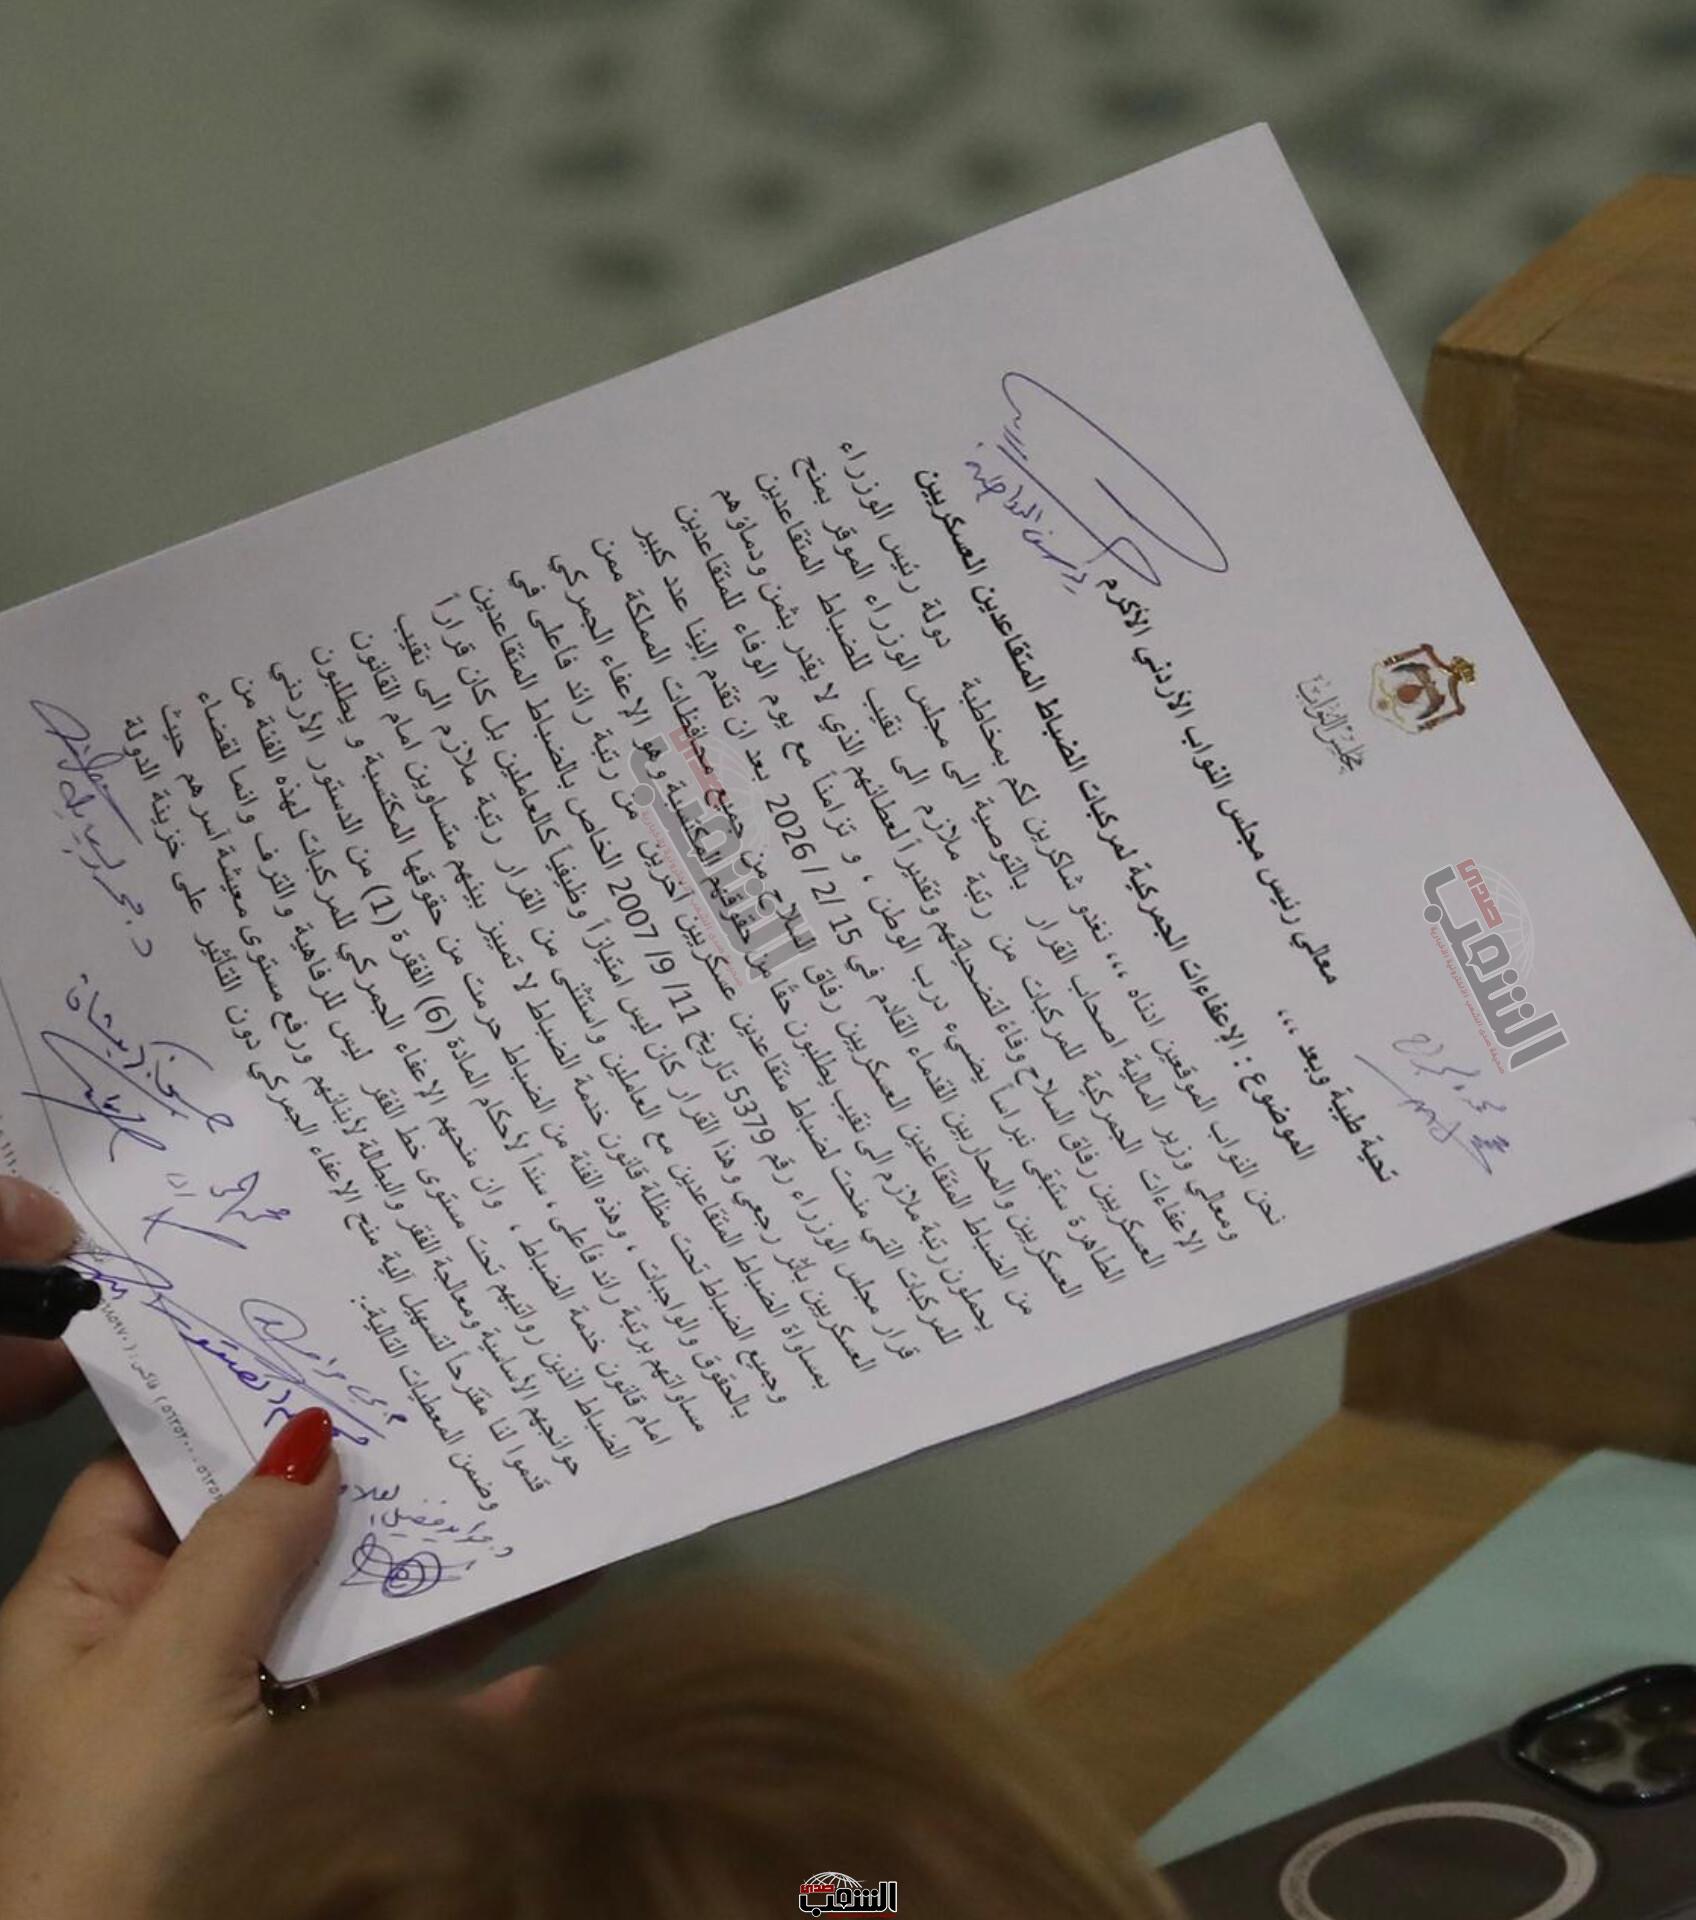 مجلس النواب
معالي رئيس مجلس النواب الأردني الأكرم
تحية طيبة وبعد ،،،
الموضوع : الإعفاءات الجمركية لمركبات الضباط المتقاعدين العسكريين
نحن النواب الموقعين ادناه ،،، نغدو شاكرين لكم بمخاطبة دولة رئيس الوزراء
ومعالي وزير المالية اصحاب القرار بالتوصية الى مجلس الوزراء الموقر بمنح
الإعفاءات الجمركية للمركبات من رتبة ملازم الى نقيب للضباط المتقاعدين
العسكريين رفاق السلاح وفاءً لتضحياتهم وتقديراً لعطائهم الذي لا يقدر بثمن ودماؤهم
الطاهرة ستبقى نبراساً يضيء درب الوطن ، و تزامناً مع يوم الوفاء للمتقاعدين
العسكريين والمحاربين القدماء القادم في 15 /2 /2026 بعد ان تقدم إلينا عدد كبير
من الضباط المتقاعدين العسكريين رفاق السلاح من جميع محافظات المملكة ممن
يحملون رتبة ملازم الى نقيب يطلبون حقاً من حقوقهم المكتسبة وهو الإعفاء الجمركي
للمركبات التي منحت لضباط متقاعدين عسكريين آخرين من رتبة رائد فأعلى في
قرار مجلس الوزراء رقم 5379 تاريخ 11/ 9/ 2007 الخاص بالضباط المتقاعدين
العسكريين بأثر رجعي وهذا القرار كان ليس امتيازاً وظيفياً كالعاملين بل كان قراراً
بمساواة الضباط المتقاعدين مع العاملين واستثنى من القرار رتبة ملازم الى نقيب
وجميع الضباط تحت مظلة قانون خدمة الضباط لا تمييز بينهم متساوين امام القانون
بالحقوق والواجبات ، وهذه الفئة من الضباط حرمت من حقوقها المكتسبة و يطلبون
مساواتهم برتبة رائد فأعلى ، سنداً لأحكام المادة (6) الفقرة (1) من الدستور الأردني
امام قانون خدمة الضباط ، وان منحهم الإعفاء الجمركي للمركبات لهذه الفئة من
الضباط الذين رواتبهم تحت مستوى خط الفقر ليس للرفاهية والترف وانما لقضاء
حوائجهم الأساسية ومعالجة الفقر والبطالة لأبنائهم ورفع مستوى معيشة أسرهم حيث
قدموا لنا مقترحاً لتسهيل آلية منح الإعفاء الجمركي دون التأثير على خزينة الدولة
وضمن المعطيات التالية:
صدى
الشعب
صدى
الشعب
صدى
الشعب